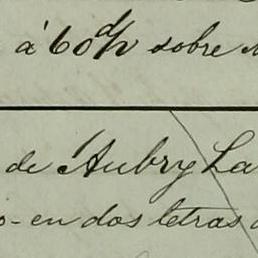 á 60 d/v sobre
de Aubry La
o-en dos letras